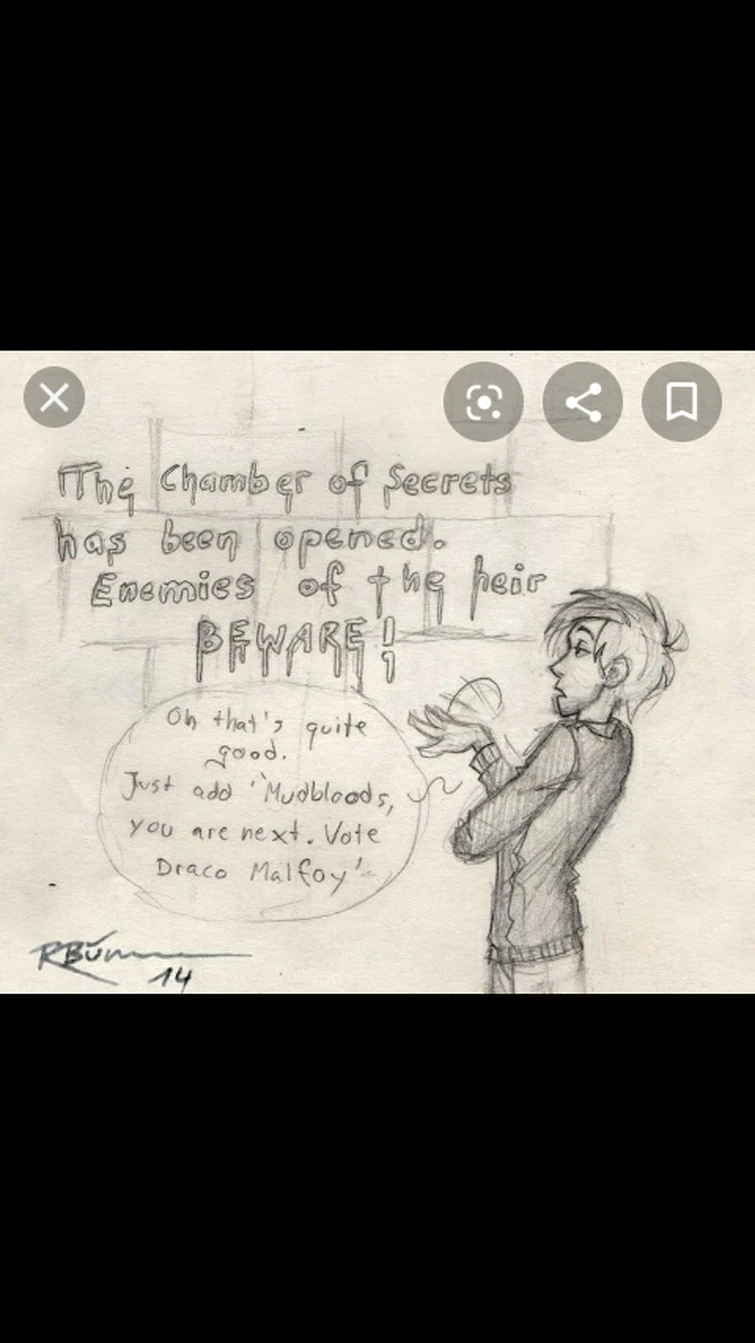 The Chamber of Secrets
has been opened.
Enemies of the heir
BEWARE!
Oh that's quite
good.
Just add "Mudbloods,
you are next. Vote
Draco Malfoy"
14